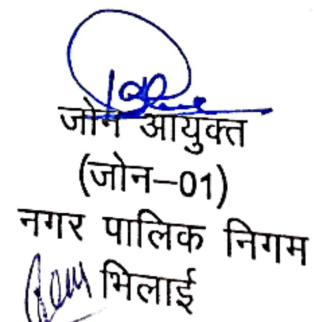 जोन आयुक्त
(जोन–01)
नगर पालिक निगम
भिलाई